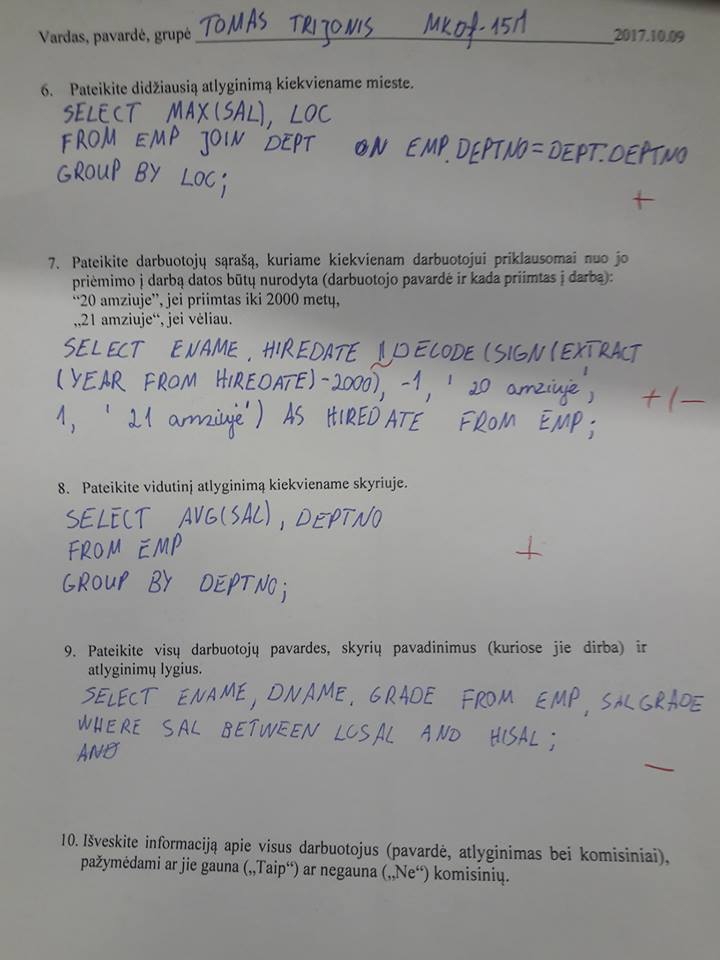 Vardas, pavardė, grupė TOMAS TRIJONIS MKDf-15/1 2017.10.09
6. Pateikite didžiausią atlyginimą kiekviename mieste.
SELECT MAX(SAL), LOC
FROM EMP JOIN DEPT ON EMP.DEPTNO=DEPT.DEPTNO
GROUP BY LOC;
+
7. Pateikite darbuotojų sąrašą, kuriame kiekvienam darbuotojui priklausomai nuo jo
priėmimo į darbą datos būtų nurodyta (darbuotojo pavardė ir kada priimtas į darbą):
“20 amziuje”, jei priimtas iki 2000 metų,
„21 amziuje“, jei vėliau.
SELECT ENAME, HIREDATE, DECODE(SIGN(EXTRACT
(YEAR FROM HIREDATE)-2000), -1, ' 20 amziuje',
1, ' 21 amziuje') AS HIREDATE FROM EMP;
+/-
8. Pateikite vidutinį atlyginimą kiekviename skyriuje.
SELECT AVG(SAL), DEPTNO
FROM EMP
+
GROUP BY DEPTNO;
9. Pateikite visų darbuotojų pavardes, skyrių pavadinimus (kuriose jie dirba) ir
atlyginimų lygius.
SELECT ENAME, DNAME, GRADE FROM EMP, SALGRADE
WHERE SAL BETWEEN LOSAL AND HISAL;
AND
-
10. Išveskite informaciją apie visus darbuotojus (pavardė, atlyginimas bei komisiniai),
pažymėdami ar jie gauna („Taip“) ar negauna („Ne“) komisinių.